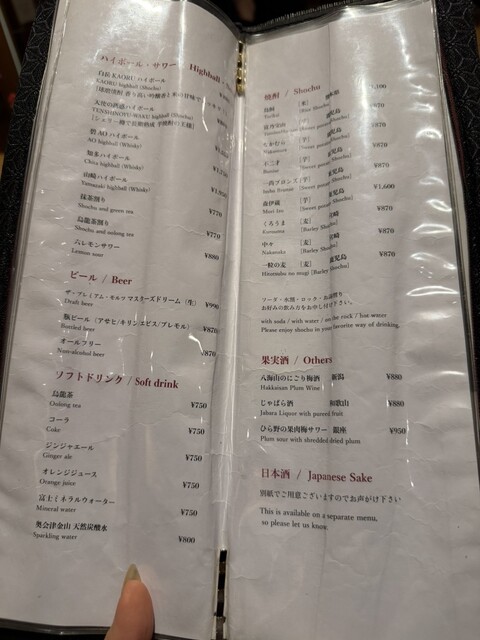 ハイボール・サワー / Highball /
白岳 KAORU ハイボール
KAORU highball (Shochu)
天使の誘惑ハイボール
TENSHINOYU-WAKU highball (Shochu)
碧 AO ハイボール
AO highball (Whisky)
知多ハイボール
Chita highball (Whisky)
山崎ハイボール
Yamazaki highball (Whisky)
抹茶割り ¥770
Shochu and green tea
烏龍茶割り ¥770
Shochu and oolong tea
六レモンサワー ¥880
Lemon sour
ビール / Beer
ザ・プレミアム・モルツ マスターズドリーム（生） ¥990
Draft beer
瓶ビール（アサヒ/キリン/エビス/プレモル） ¥870
Bottled beer
オールフリー ¥870
Non-alcohol beer
ソフトドリンク / Soft drink
烏龍茶 ¥750
Oolong tea
コーラ ¥750
Coke
ジンジャエール ¥750
Ginger ale
オレンジジュース ¥750
Orange juice
富士ミネラルウォーター ¥750
Mineral water
奥会津金山 天然炭酸水 ¥800
Sparkling water
焼酎 / Shochu
鳥飼 [米]
Torikai [Rice Shochu]
[芋] 鹿児島 ¥870
[Sweet potato Shochu]
なかむら [芋] 鹿児島 ¥870
Nakamura [Sweet potato Shochu]
不二才 [芋] 鹿児島 ¥870
Bunise [Sweet potato Shochu]
一尚ブロンズ [芋] 鹿児島 ¥870
Issho bronze [Sweet potato Shochu]
森伊蔵 [芋] 鹿児島 ¥1,600
Mori-Izo [Sweet potato Shochu]
くろうま [麦] 宮崎 ¥870
Kurouma [Barley Shochu]
中々 [麦] 宮崎 ¥870
Nakanaka [Barley Shochu]
一粒の麦 [麦] 鹿児島 ¥870
Hitotsubu no mugi [Barley Shochu]
ソーダ・水割・ロック・お湯割り
お好みの飲み方をお申し付け下さい。
with soda / with water / on the rock / hot water
Please enjoy shochu in your favorite way of drinking.
果実酒 / Others
八海山のにごり梅酒 新潟 ¥880
Hakkaisan Plum Wine
じゃばら酒 和歌山 ¥880
Jabara Liquor with pureed fruit
ひら野の果肉梅サワー 銀座 ¥950
Plum sour with shredded dried plum
日本酒 / Japanese Sake
別紙でご用意ございますのでお声がけ下さい
This is available on a separate menu,
so please let us know.